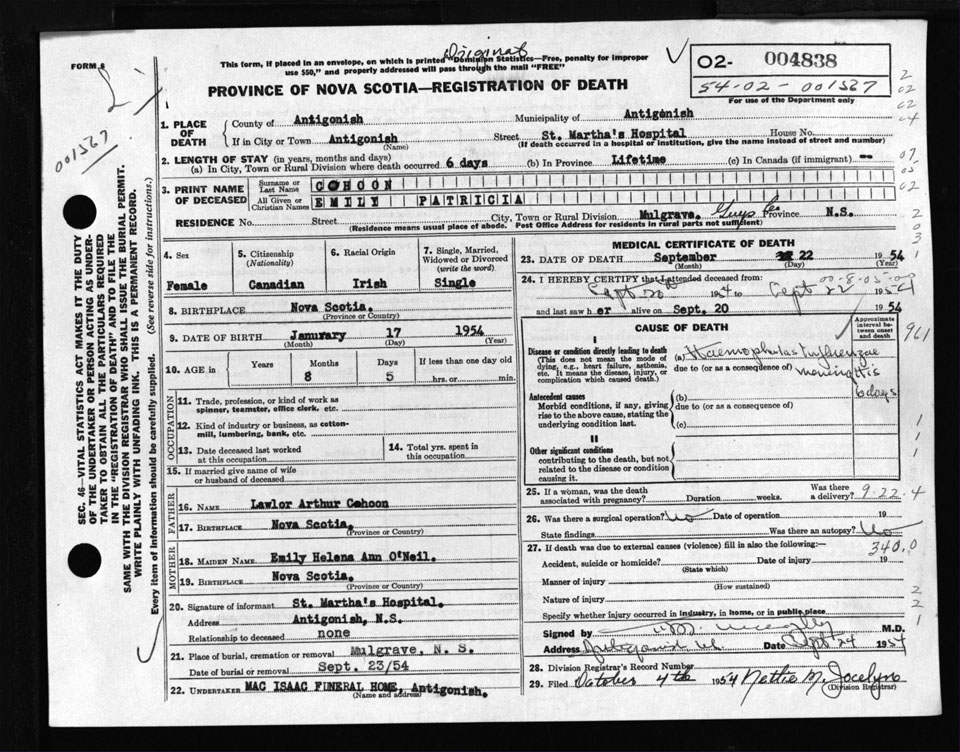 Original
FORM 6
This form, if placed in an envelope, on which is printed "Dominion Statistics—Free, penalty for improper
use $50," and properly addressed will pass through the mail "FREE"
02- 004838
54-02-001567
For use of the Department only
PROVINCE OF NOVA SCOTIA—REGISTRATION OF DEATH
001567
1. PLACE OF DEATH
County of Antigonish Municipality of Antigonish
If in City or Town Antigonish (Name) Street St. Martha's Hospital House No.
(If death occurred in a hospital or institution, give the name instead of street and number)
2. LENGTH OF STAY (in years, months and days)
(a) In City, Town or Rural Division where death occurred 6 days (b) In Province Lifetime (c) In Canada (if immigrant) --
3. PRINT NAME OF DECEASED
Surname or Last Name COHOON
All Given or Christian Names EMILY PATRICIA
RESIDENCE No. Street City, Town or Rural Division Mulgrave. Guys Co Province N.S.
(Residence means usual place of abode. Post Office Address for residents in rural parts not sufficient)
4. Sex
Female
5. Citizenship (Nationality)
Canadian
6. Racial Origin
Irish
7. Single, Married, Widowed or Divorced (write the word)
Single
8. BIRTHPLACE Nova Scotia.
(Province or Country)
9. DATE OF BIRTH Janurary 17 1954
(Month) (Day) (Year)
10. AGE in Years Months 8 Days 5 If less than one day old hrs. or min.
OCCUPATION
11. Trade, profession, or kind of work as
spinner, teamster, office clerk, etc.
12. Kind of industry or business, as cotton-
mill, lumbering, bank, etc.
13. Date deceased last worked
at this occupation
14. Total yrs. spent in
this occupation
15. If married give name of wife
or husband of deceased
FATHER
16. NAME Lawlor Arthur Cohoon
17. BIRTHPLACE Nova Scotia.
(Province or Country)
MOTHER
18. MAIDEN NAME Emily Helena Ann O'Neil.
19. BIRTHPLACE Nova Scotia.
(Province or Country)
20. Signature of informant St. Martha's Hospital.
Address Antigonish, N.S.
Relationship to deceased none
21. Place of burial, cremation or removal Mulgrave, N. S.
Date of burial or removal Sept. 23/54
22. UNDERTAKER MAC ISAAC FUNERAL HOME, Antigonish.
(Name and address)
MEDICAL CERTIFICATE OF DEATH
23. DATE OF DEATH September 22 1954
(Month) (Day) (Year)
24. I HEREBY CERTIFY that I attended deceased from:
Sept 20th 1954 to Sept 22 1954
and last saw her alive on Sept. 20 1954
CAUSE OF DEATH
Approximate interval between onset and death
I
Disease or condition directly leading to death
(This does not mean the mode of
dying, e.g., heart failure, asthenia,
etc. It means the disease, injury, or
complication which caused death.)
(a) Haemophulas Influenzae
due to (or as a consequence of) meningitis
6 days
Antecedent causes
Morbid conditions, if any, giving
rise to the above cause, stating the
underlying condition last.
(b)
due to (or as a consequence of)
(c)
II
Other significant conditions
contributing to the death, but not
related to the disease or condition
causing it.
25. If a woman, was the death
associated with pregnancy? Duration weeks. Was there a delivery? 9-22.4
26. Was there a surgical operation? No Date of operation 19
State findings Was there an autopsy? No
27. If death was due to external causes (violence) fill in also the following:— 340.0
Accident, suicide or homicide? Date of injury 19
(State which)
Manner of injury
(How sustained)
Nature of injury
Specify whether injury occurred in industry, in home, or in public place
Signed by M.D.
Address Date Sept 24 1954
28. Division Registrar's Record Number
29. Filed October 4th 1954 Nettie M. Jocelyn
(Division Registrar)
961
SEC. 46—VITAL STATISTICS ACT MAKES IT THE DUTY
OF THE UNDERTAKER OR PERSON ACTING AS UNDER-
TAKER TO OBTAIN ALL THE PARTICULARS REQUIRED
IN THE "REGISTRATION OF DEATH" AND TO FILE THE
SAME WITH THE DIVISION REGISTRAR WHO SHALL ISSUE THE BURIAL PERMIT.
WRITE PLAINLY WITH UNFADING INK. THIS IS A PERMANENT RECORD.
Every item of Information should be carefully supplied. (See reverse side for instructions.)